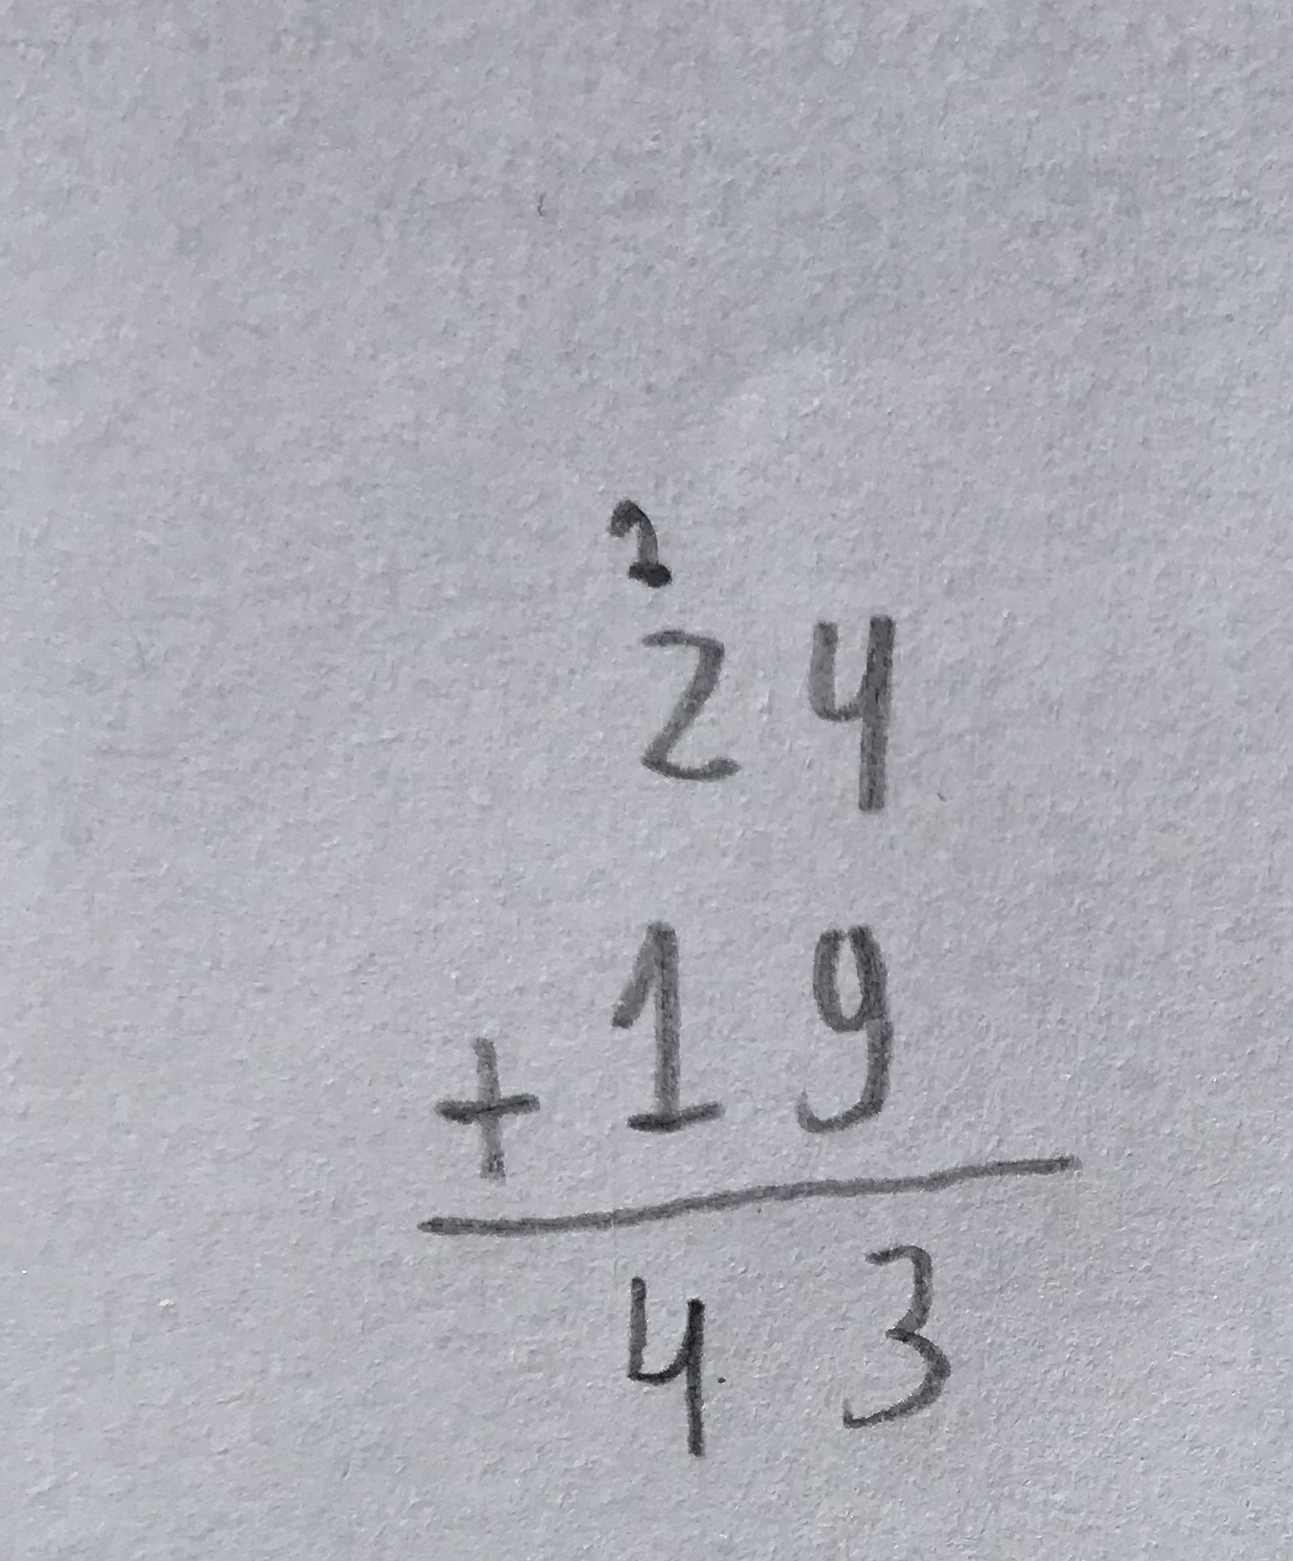 1
24
+ 19
43